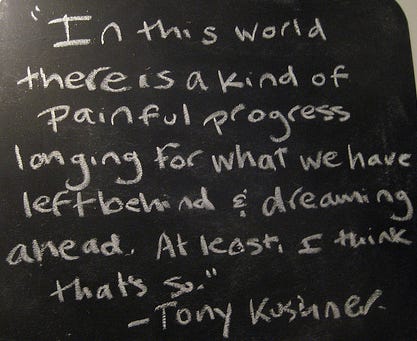 "In this world
there is a kind of
painful progress
longing for what we have
left behind & dreaming
ahead. At least, I think
that's so."
- Tony Kushner.